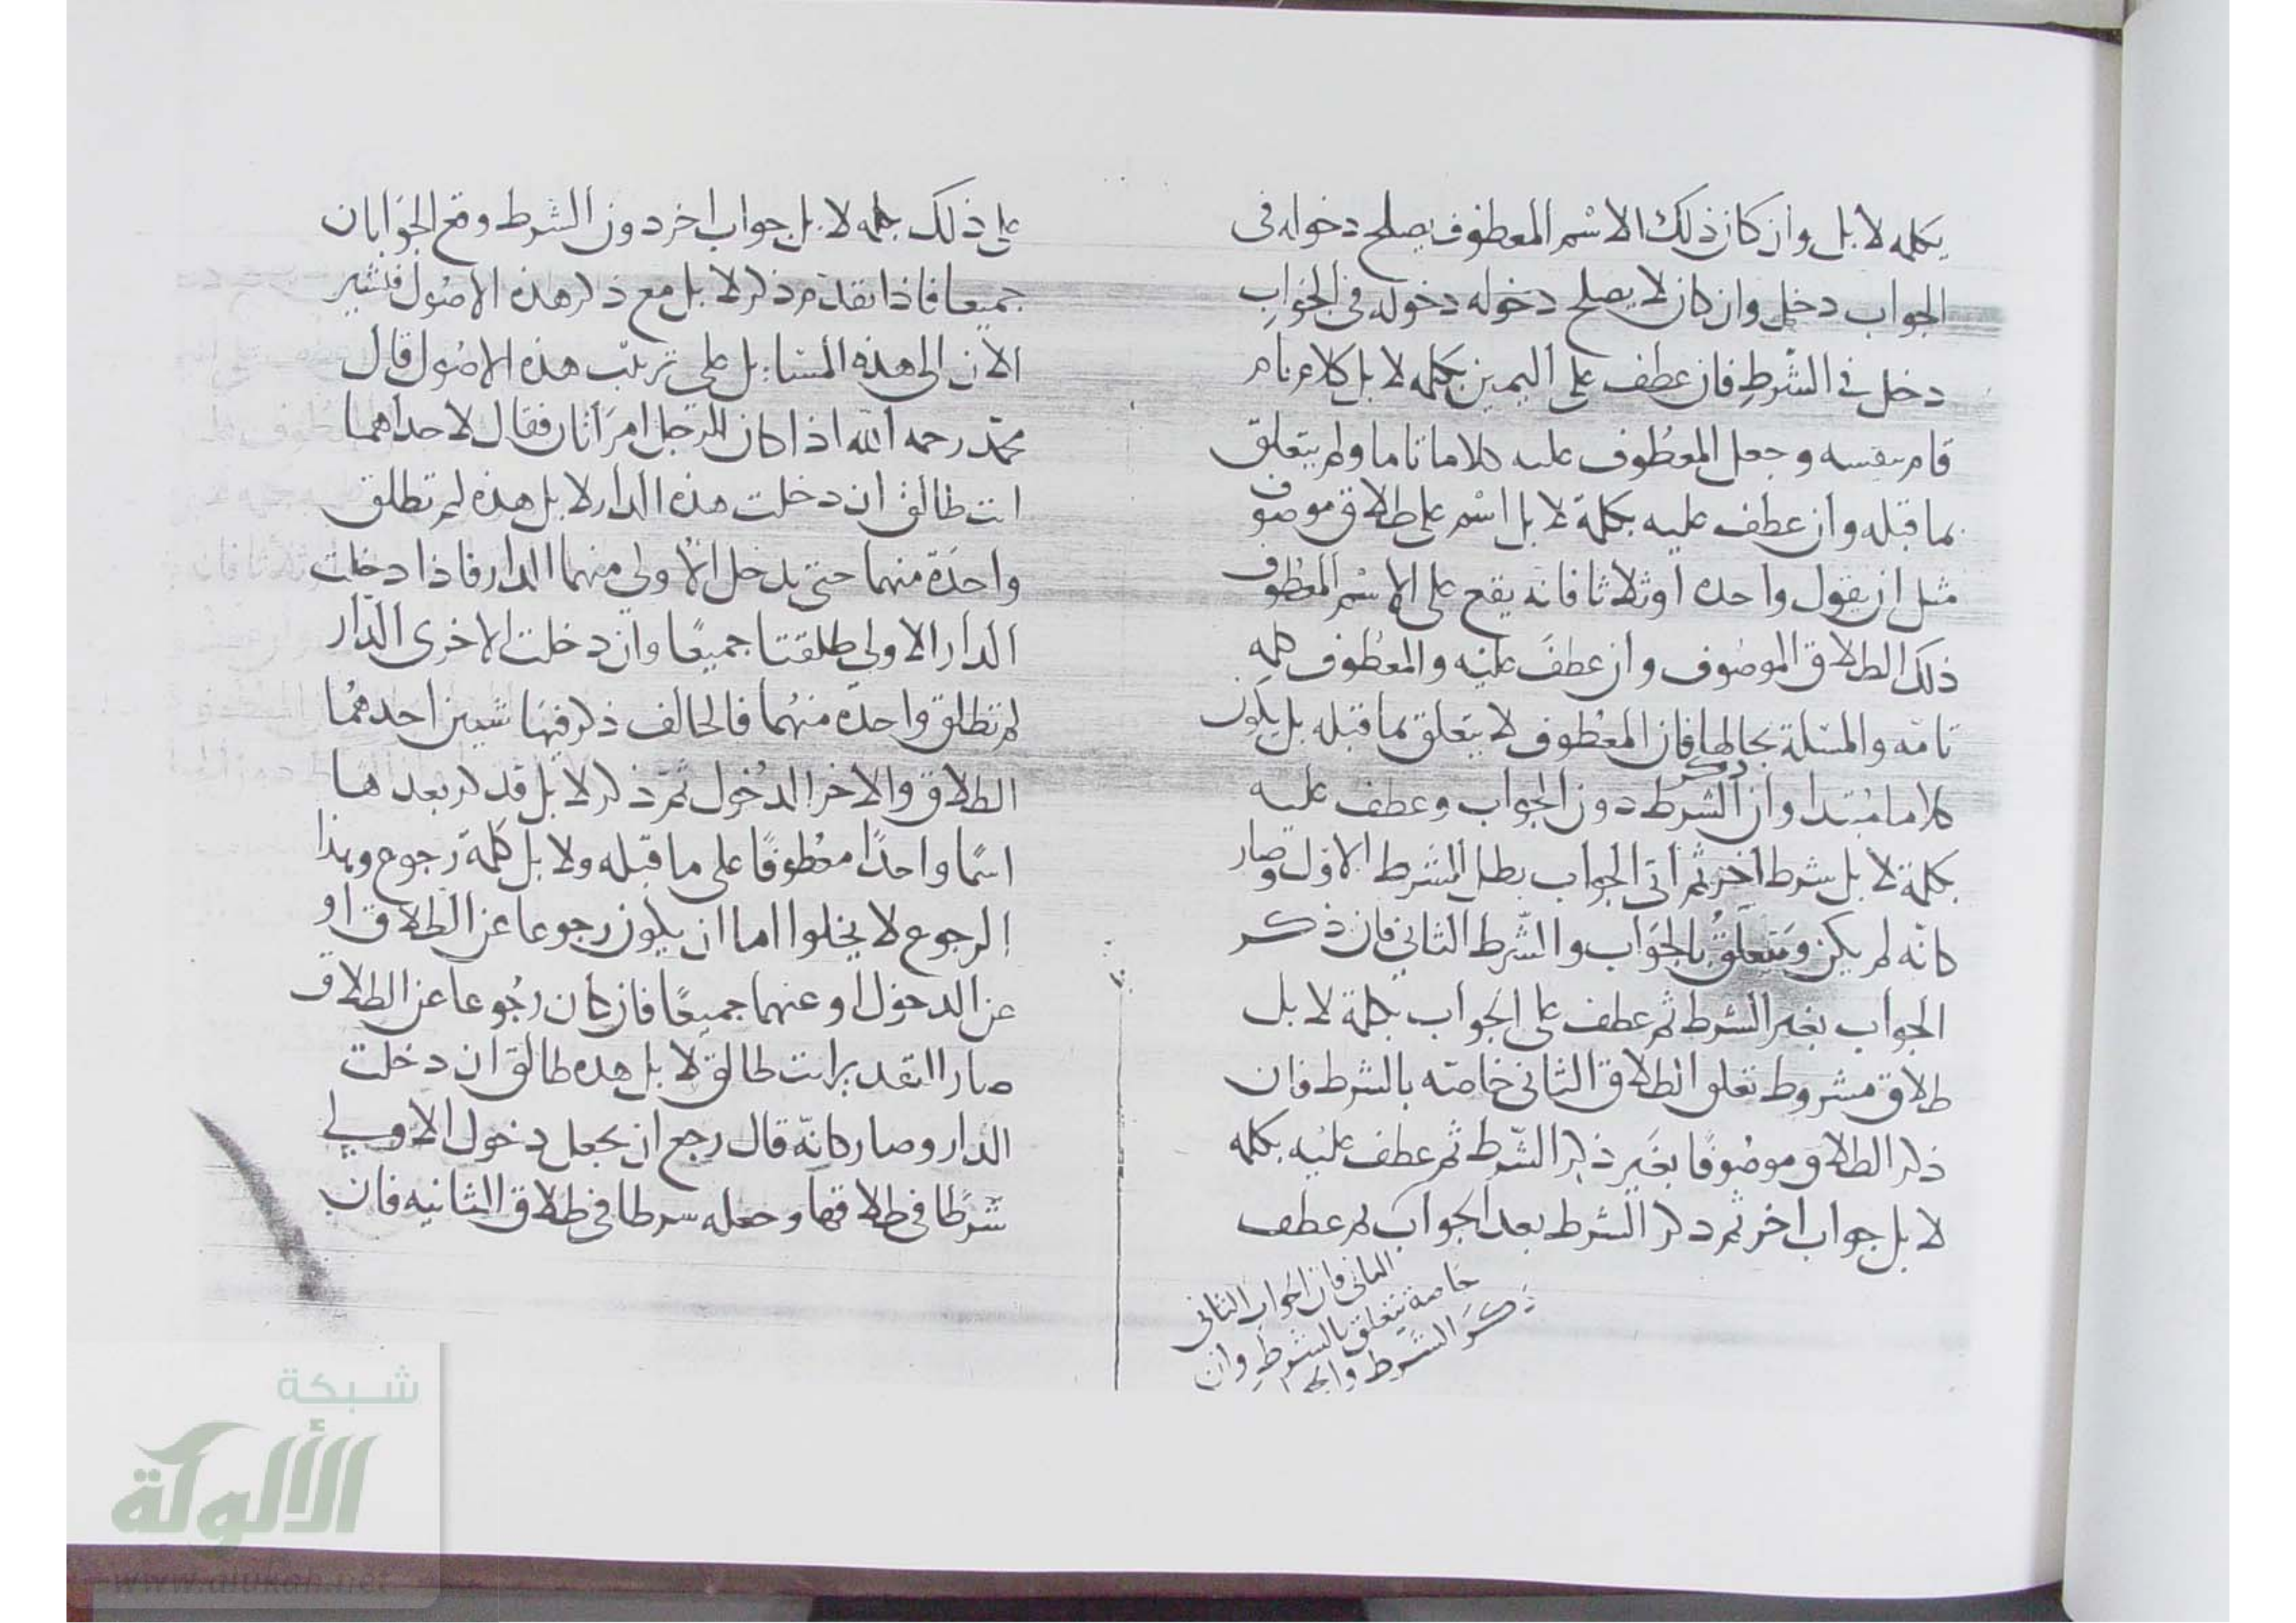 بكلمه لا بل وان كان ذلك الاسم المعطوف يصلح دخوله في
الجواب دخل وان كان لا يصلح دخوله دخوله في الجواب
دخل في الشرط فان عطف على اليمين بكلمه لا بل كلام تام
قام بنفسه وجعل المعطوف عليه كلاما تاما ولم يتعلق
بما قبله وان عطف عليه بكلمة لا بل اسم على طلاق موصوف
مثل ان يقول واحده او ثلاثا فانه يقع على الاسم المعطوف
ذلك الطلاق الموصوف وان عطف عليه والمعطوف كلمه
تامه والمسئلة بحالها فان المعطوف لا يتعلق بما قبله بل يكون
كلاما مبتدا وان ذكر الشرط دون الجواب وعطف عليه
بكلمة لا بل شرط اخر ثم اتى الجواب بطل الشرط الاول وصار
كانه لم يكن ويتعلق بالجواب والشرط الثاني فان ذكر
الجواب بغير الشرط ثم عطف على الجواب بكلمة لا بل
طلاق مشروط تعلق الطلاق الثاني خاصته بالشرط فان
ذكر الطلاق موصوفا بغير ذكر الشرط ثم عطف عليه بكلمه
لا بل جواب اخر ثم ذكر الشرط بعد الجواب ثم عطف
الثاني فان الجواب الثاني
خاصة يتعلق بالشرط وان
ذكر الشرط
على ذلك بكلمه لا بل جواب اخر دون الشرط وقع الجوابان
جميعا فاذا تقدم ذكر لا بل مع ذكر هذه الاصول فنشير
الان الى هذه المسائل على ترتيب هذه الاصول قال
محمد رحمه الله اذا كان للرجل امراتان فقال لاحداهما
انت طالق ان دخلت هذه الدار لا بل هذه لم تطلق
واحدة منهما حتى يدخل الاولى منهما الدار فاذا دخلت
الدار الاولى طلقتا جميعا وان دخلت الاخرى الدار
لم تطلق واحدة منهما فالحالف ذكر فيها شيئين احدهما
الطلاق والاخر الدخول ثم ذكر لا بل قد ذكر بعدها
اسما واحدا معطوفا على ما قبله ولا بل كلمة رجوع وهذا
الرجوع لا يخلوا اما ان يكون رجوعا عن الطلاق او
عن الدخول او عنهما جميعا فان كان رجوعا عن الطلاق
صار التقدير انت طالق لا بل هذه طالق ان دخلت
الدار وصار كانه قال رجع ان يجعل دخول الاولى
شرطا في طلاقها وجعله شرطا في طلاق الثانيه فان
شبكة
الألوكة
www.alukah.net